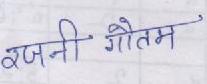 रजनी गौतम